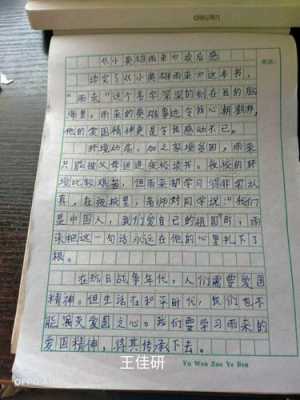 《小英雄雨来》读后感
读完了《小英雄雨来》这本书，
"雨来"这个名字深深的刻在我的脑
海里，雨来的英雄事迹令我心潮澎湃，
他的爱国精神更是令我感动不已。
环境动荡，加之家境贫困，雨来
只能被父母送进夜校读书。夜校的环
境比较艰苦，但雨来却学习得非常认
真。在夜校里，老师对同学说："我们
是中国人，我们爱自己的祖国。"雨
来把这一句话永远在他的心里扎下了
根。
在抗日战争年代，人们需要爱国
精神。但生活在和平时代，我们也不
能丢失爱国之心。我们要学习雨来的
爱国精神，将其传承下去。
Yu Wen Zuo Ye Ben
王佳研